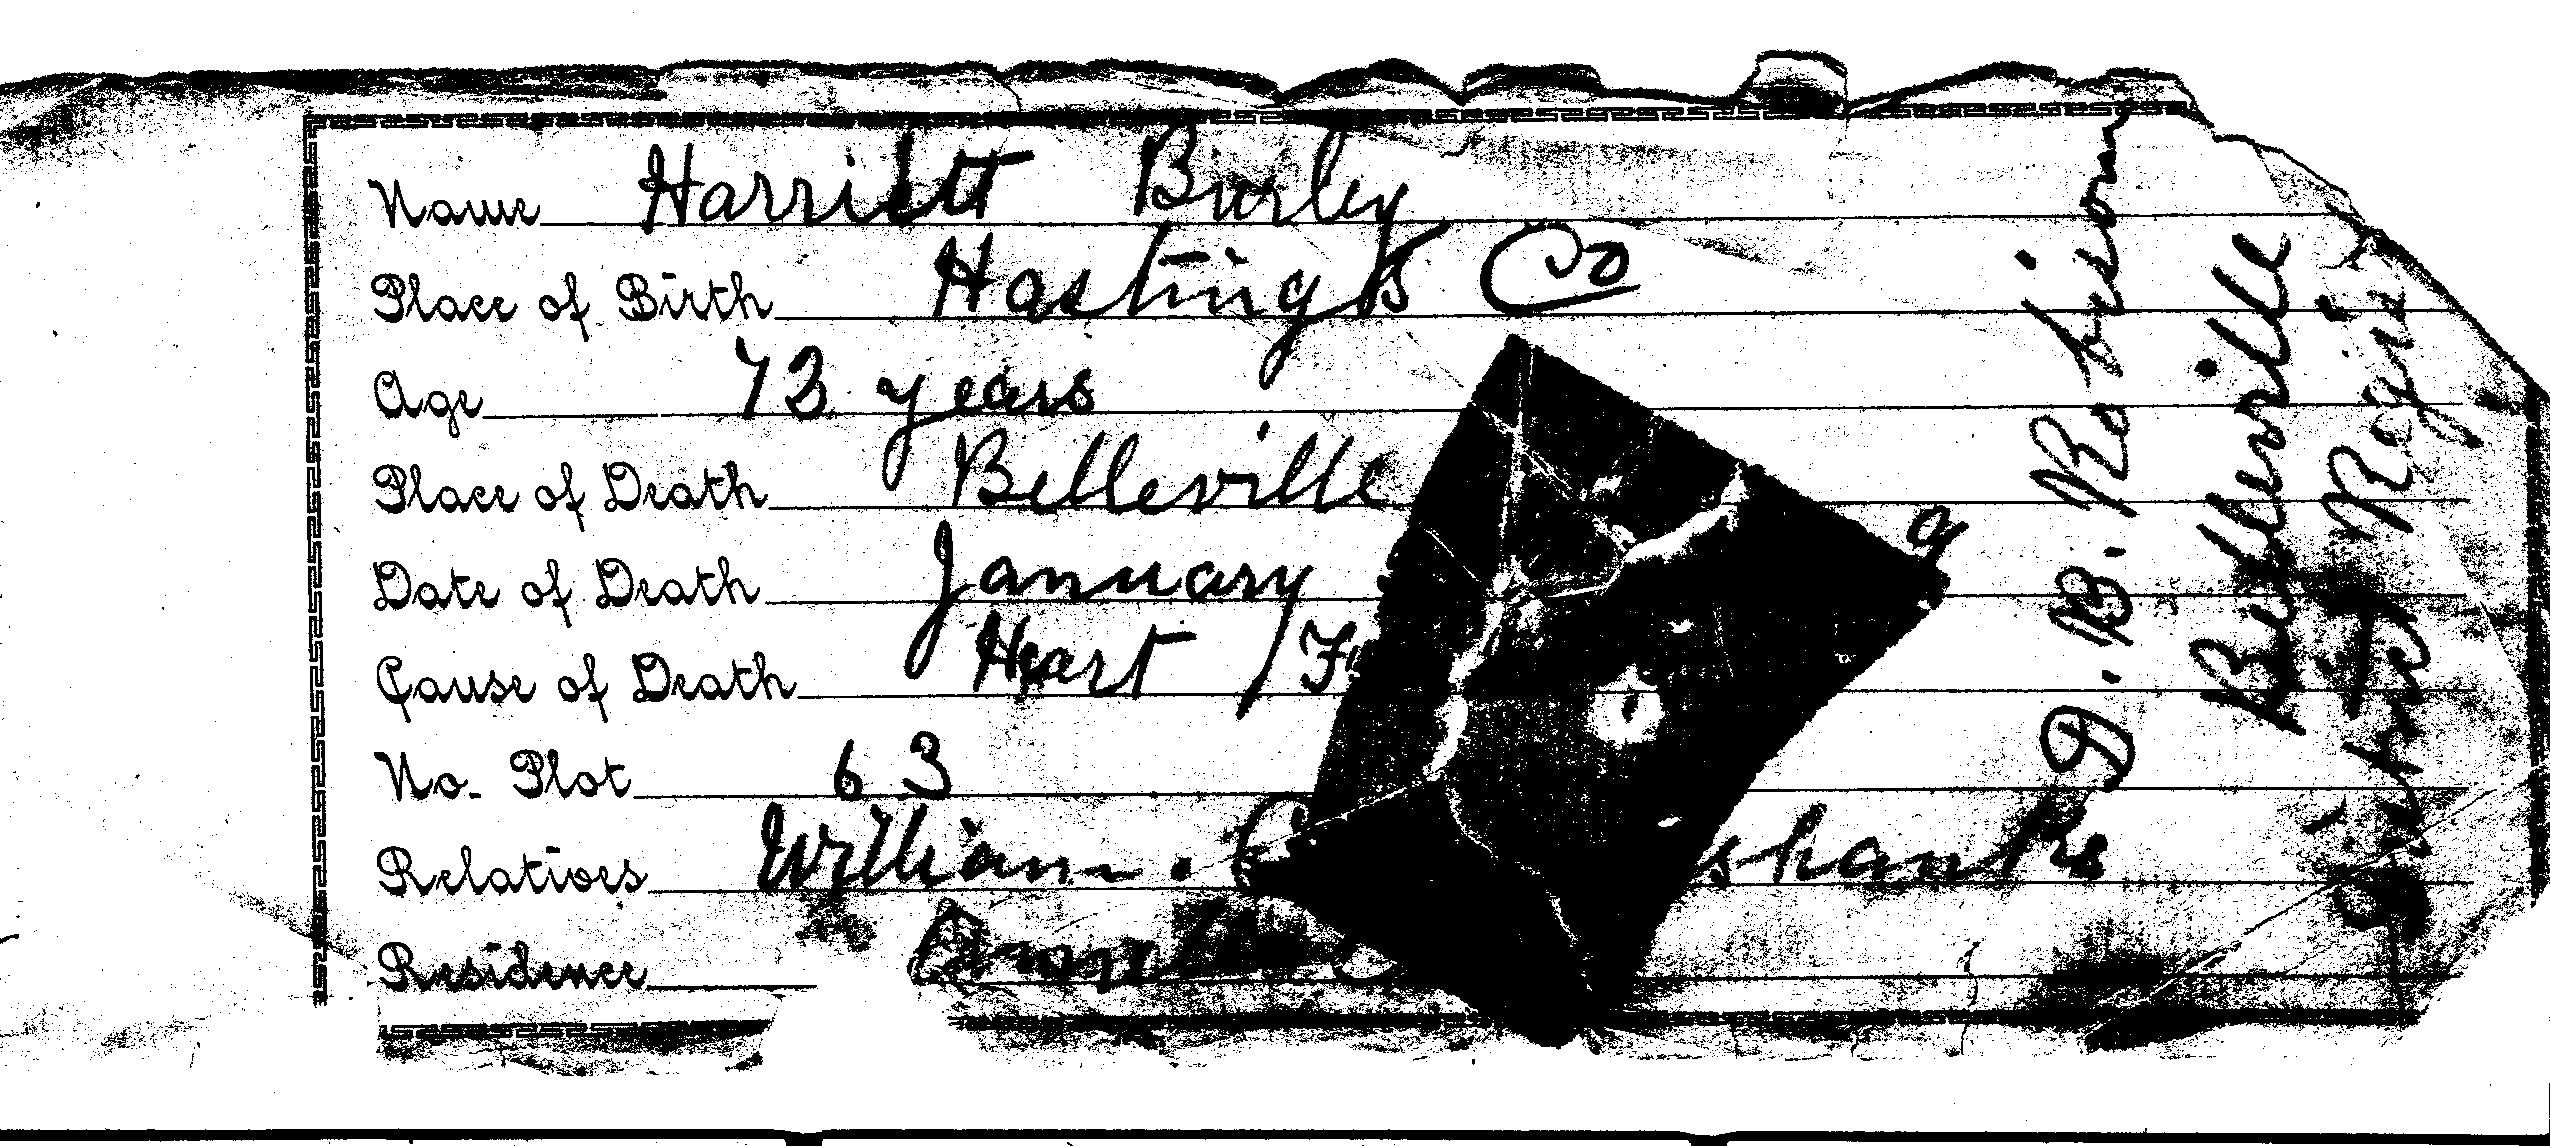 Name Harriett Burley
Place of Birth Hastings Co
Age 73 years
Place of Death Belleville
Date of Death January 9
Cause of Death Heart
No. Plot 63
Relatives William shanks
Residence
D. B. Robison
Belleville